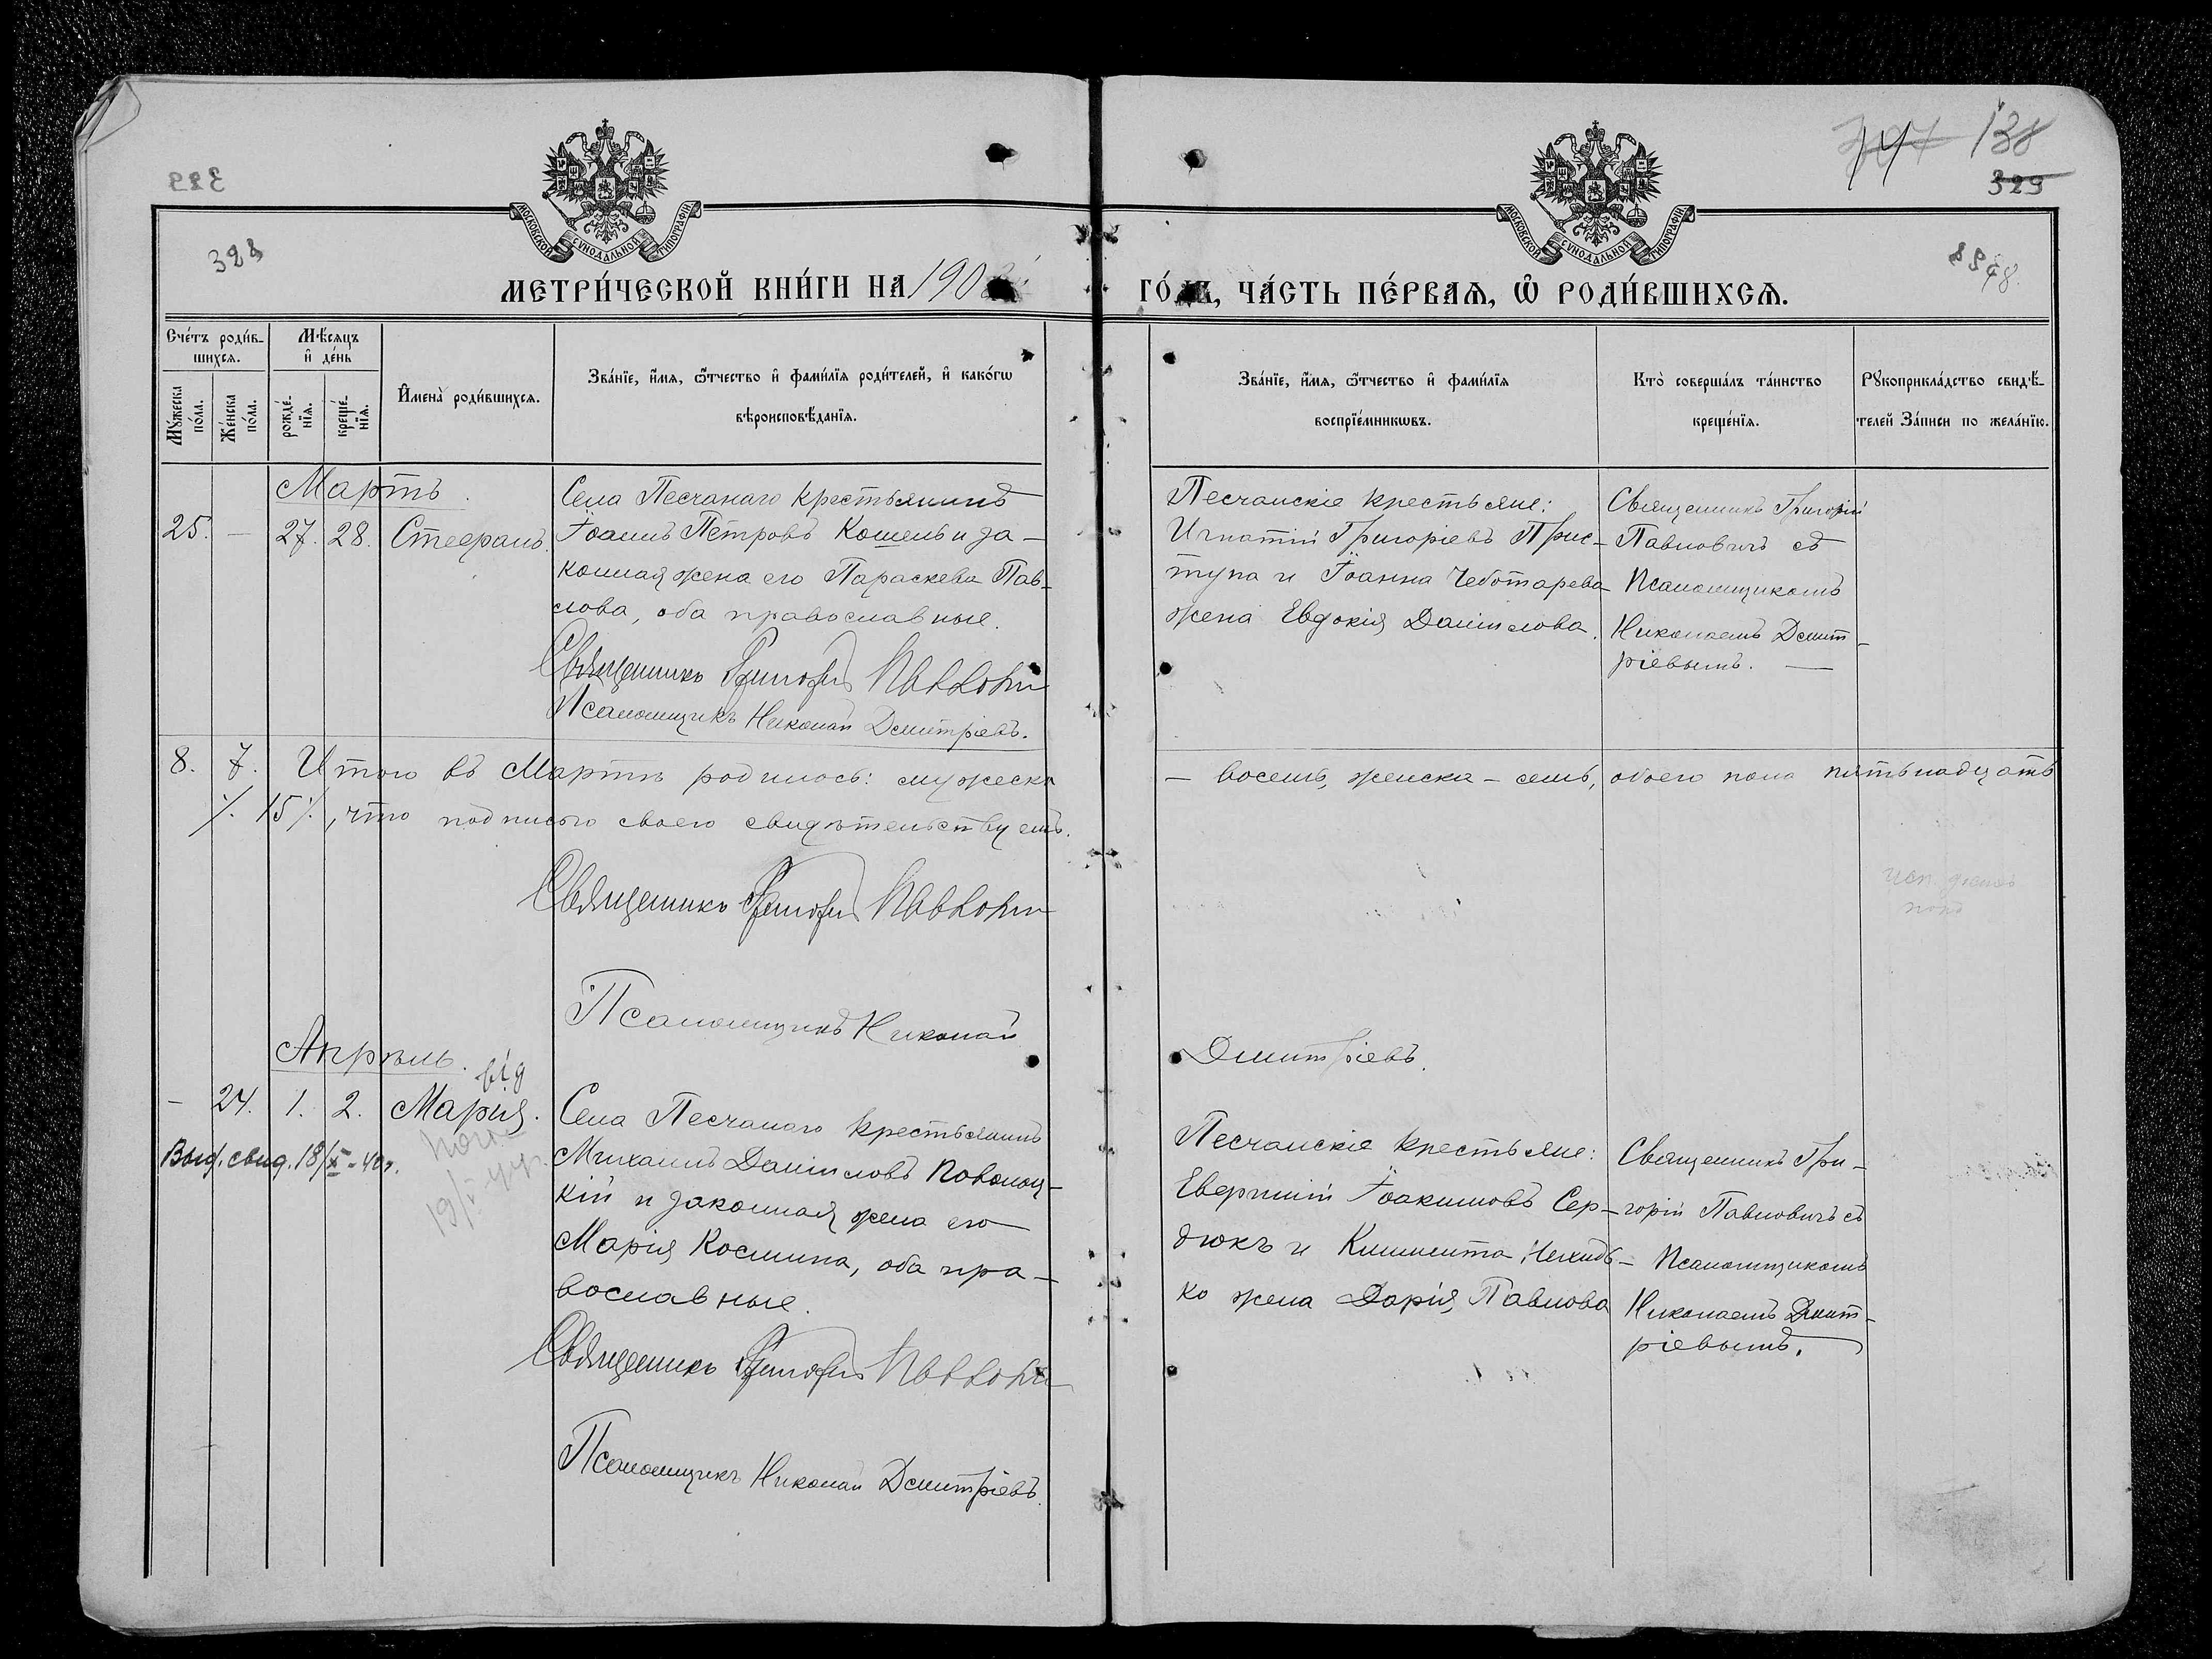 138
329
328
МОСКОВСКОЙ СѴНОДАЛЬНОЙ ТИПОГРАФІИ
МОСКОВСКОЙ СѴНОДАЛЬНОЙ ТИПОГРАФІИ
МЕТРИ́ЧЕСКОЙ КНИ́ГИ НА 190
ГО́ДЪ, ЧА́СТЬ ПЕ́РВАѦ, Ѿ РОДИ́ВШИХСѦ.
Сче́тъ роди́в-
шихсѧ.
Мꙋ́жеска по́ла.
Же́нска по́ла.
Мѣ́сѧцъ
и҆ де́нь
рожде́-
нїѧ.
креще́-
нїѧ.
И҆мена̀ роди́вшихсѧ.
Зва́нїе, и҆́мѧ, ѻ҆́тчество и҆ фами́лїѧ роди́телей, и҆ како́гѡ
вѣроисповѣ́данїѧ.
Зва́нїе, и҆́мѧ, ѻ҆́тчество и҆ фами́лїѧ
воспрїе́мникѡвъ.
Кто̀ соверша́лъ та́инство
креще́нїѧ.
Рꙋкоприкла́дство свидѣ́-
телей За́писи по жела́нїю.
Мартъ.
25. — 27. 28. Стефанъ.
Села Песчанаго крестьянинъ
Іоаннъ Петровъ Кошель и за-
конная жена его Параскева Пав-
лова, оба православные.
Священникъ Григорій Павловичъ
Псаломщикъ Николай Дмитріевъ.
Песчанскіе крестьяне:
Игнатій Григоріевъ Прис-
тупа и Іоанна Чеботарева
жена Евдокія Даніилова.
Священникъ Григорій
Павловичъ съ
Псаломщикомъ
Николаемъ Дмит-
ріевымъ. —
8. 7. Итого въ Мартѣ родилось: мужеска
— восемь, женска — семь, обоего пола пятьнадцать
/. 15 /., что подписью своею свидѣтельствуемъ.
Священникъ Григорій Павловичъ
Псаломщикъ Николай
Дмитріевъ.
Апрѣль.
— 24. 1. 2. Марія.
Выд. свид. 18/X-40г.
Села Песчаного крестьянинъ
Михаилъ Даніиловъ Поволоц-
кій и законная жена его
Марія Космина, оба пра-
вославные.
Священникъ Григорій Павловичъ
Псаломщикъ Николай Дмитріевъ.
Песчанскіе крестьяне:
Евфимій Іоакимовъ Сер-
дюкъ и Климента
ко жена Дарія Павлова
Священникъ Гри-
горій Павловичъ съ
Псаломщикомъ
Николаемъ Дмит-
ріевымъ.